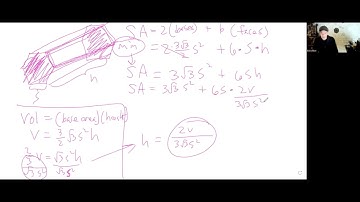 SA = 2(bases) + 6(faces)
= 2 · 3√3/2 s² + 6·s·h
min
SA = 3√3 s² + 6sh
SA = 3√3 s² + 6s · 2v/3√3s²
h
Vol = (base area)(height)
V = 3/2 √3 s² h
2/3 V = √3 s² h
√3 s² √3 s²
h = 2v/3√3s²